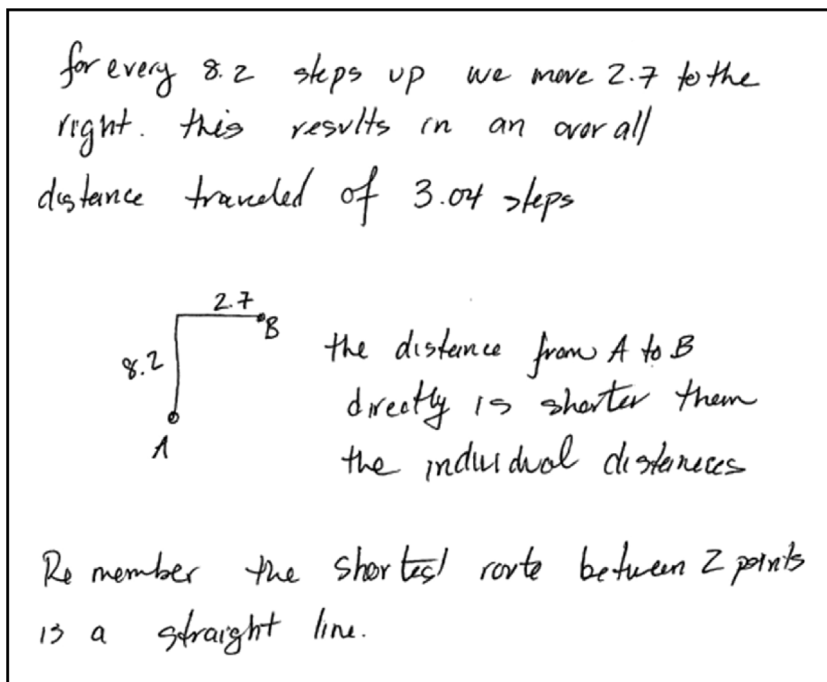 for every 8.2 steps up we move 2.7 to the
right. this results in an over all
distance traveled of 3.04 steps
2.7
B
8.2
A
the distance from A to B
directly is shorter them
the individual distances
Remember the shortest route between 2 points
is a straight line.